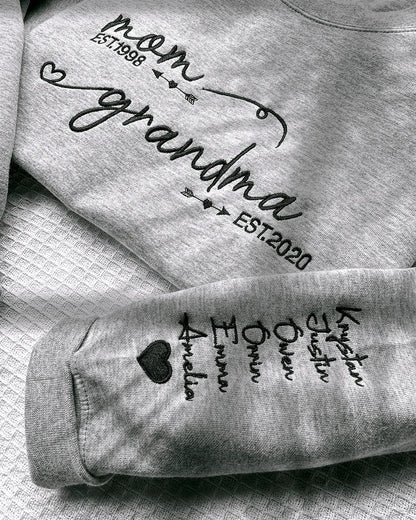 mom
EST.1998
grandma
EST.2020
Krystan
Justin
Owen
Orrin
Emma
Amelia